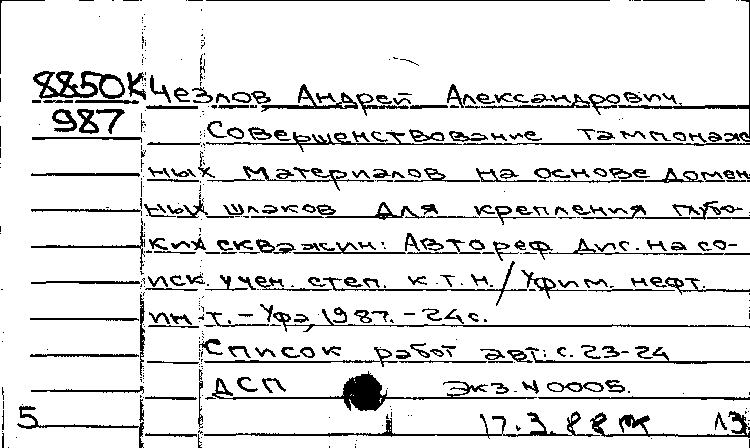 8850К Чезлов Андрей Александрович
987 Совершенствование тампонаж
ных материалов на основе домен
ных шлаков для крепления глубо-
ких скважин: Автореф. дис. на со-
иск. учен. степ. к.т.н./Уфим. нефт.
ин-т. - Уфа, 1987. - 24 с.
Список работ авт.: с. 23-24
ДСП Экз. N 0005.
5 17.3.88 13